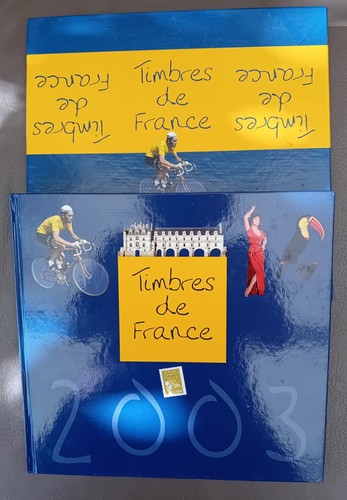 Timbres
de
France
Timbres
de
France
Timbres
de
France
Timbres
de
France
2003